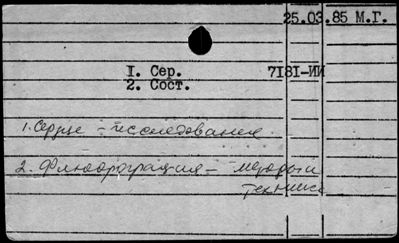 25.03.85 М.Г.
1. Сер. 7181-ИИ
2. Сост.
1. Сердце - исследования
2. Флюорография - методы и
техника